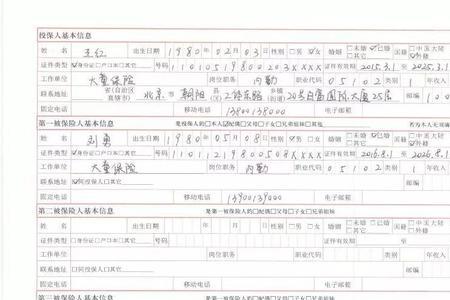 投保人基本信息
姓 名 王红 出生日期 1980年02月03日 性别 □男☑女 婚姻 □未婚☑已婚□其它 国籍 ☑中国大陆□外籍
证件类型 ☑身份证□户口本□其它 号码 11010519800203XXXX 证件有效期 2015.3.1 至 2025.3.1
工作单位 大童保险 岗位职务 内勤 职业代码 05102 1类 年收入
联系地址 省(自治区直辖市) 北京 市 朝阳 县区 乡镇街 20号 国际大厦25层 邮编 100
固定电话 移动电话 13800138000 电子邮箱
第一被保险人基本信息 是投保人的□本人☑配偶□父母□子女□兄弟姐妹□其他 若为本人无须填
姓 名 刘勇 出生日期 1980年05月08日 性别 ☑男□女 婚姻 □未婚☑已婚□其它 国籍 ☑中国大陆□外籍
证件类型 ☑身份证□户口本□其它 号码 11011219800508XXXX 证件有效期 2016.8.1 至 2026.8.1
工作单位 大童保险 岗位职务 内勤 职业代码 05102 1类 年收入
联系地址 ☑同投保人□其它 邮编
固定电话 移动电话 13900139000 电子邮箱
第二被保险人基本信息 是第一被保险人的□配偶□父母□子女□兄弟姐妹
姓 名 出生日期 年 月 日 性别 □男□女 婚姻 □未婚□已婚□其它 国籍 □中国大陆□外籍
证件类型 □身份证□户口本□其它 号码 证件有效期 至
工作单位 岗位职务 职业代码 类 年收入
联系地址 □同投保人□其它 邮编
固定电话 移动电话 电子邮箱
第三被保险人基本信息 是第一被保险人的□配偶□父母□子女□兄弟姐妹